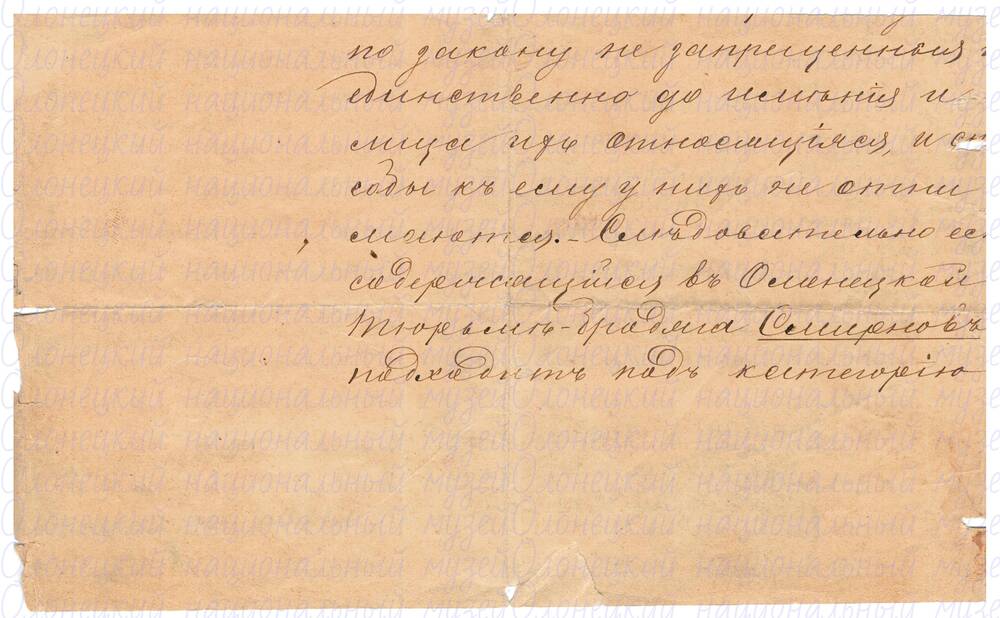 по закону не запрещенныя
единственно до имѣнія и
лица ихъ относящіяся, и сп
собы къ сему у нихъ не отни
маются. - Слѣдовательно ес
содержащійся въ Олонецкой
Тюрьмѣ - бродяга Смирновъ
подходитъ подъ категорію
Олонецкий национальный музей